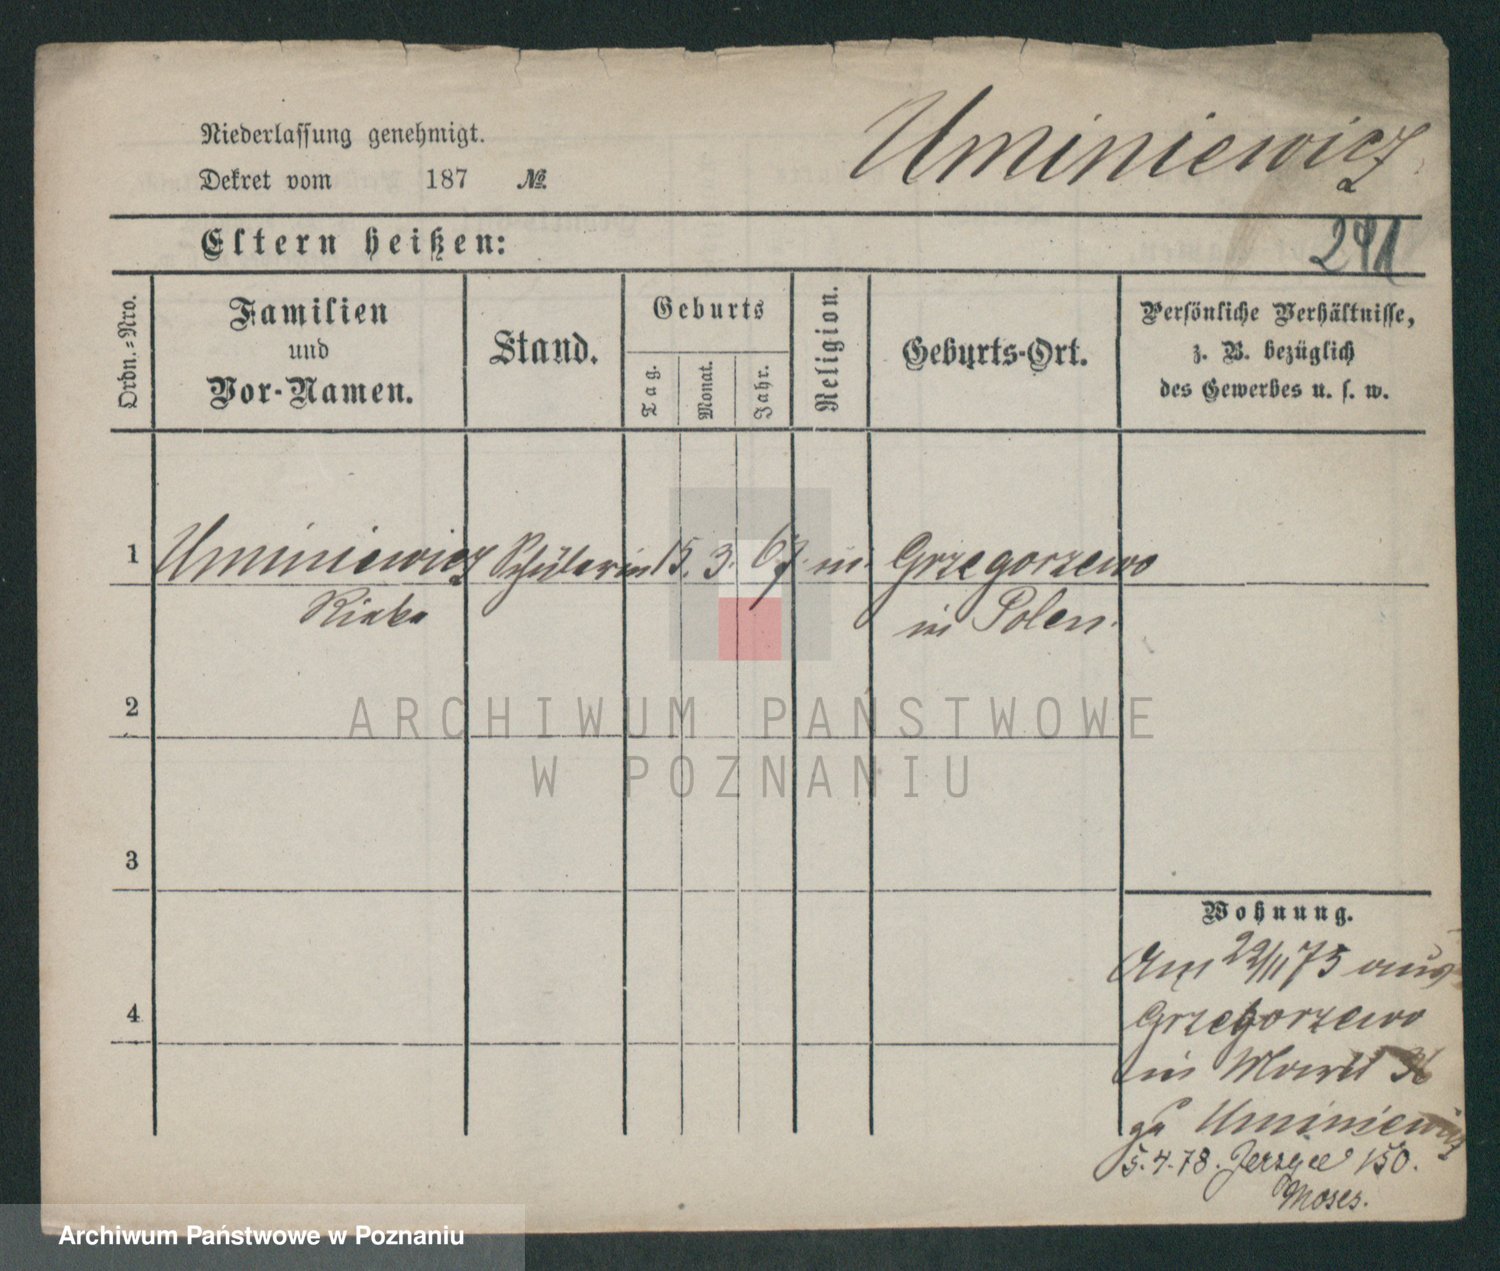 Niederlassung genehmigt.
Dekret vom 187 №
Uminiewicz
Eltern heißen:
291
Ordn.-Nro.
Familien
und
Vor-Namen.
Stand.
Geburts
Tag.
Monat.
Jahr.
Religion.
Geburts-Ort.
Persönliche Verhältnisse,
z. B. bezüglich
des Gewerbes u. s. w.
1 Uminiewicz Schülerin 15. 3. 67. m. Grzegorzewo
in Polen.
2
3
4
Wohnung.
Am 22/11 75 aus
Grzegorzewo
in Markt
zu Uminiewicz
5.4.78. 150.
Moses.
ARCHIWUM PAŃSTWOWE
W POZNANIU
Archiwum Państwowe w Poznaniu